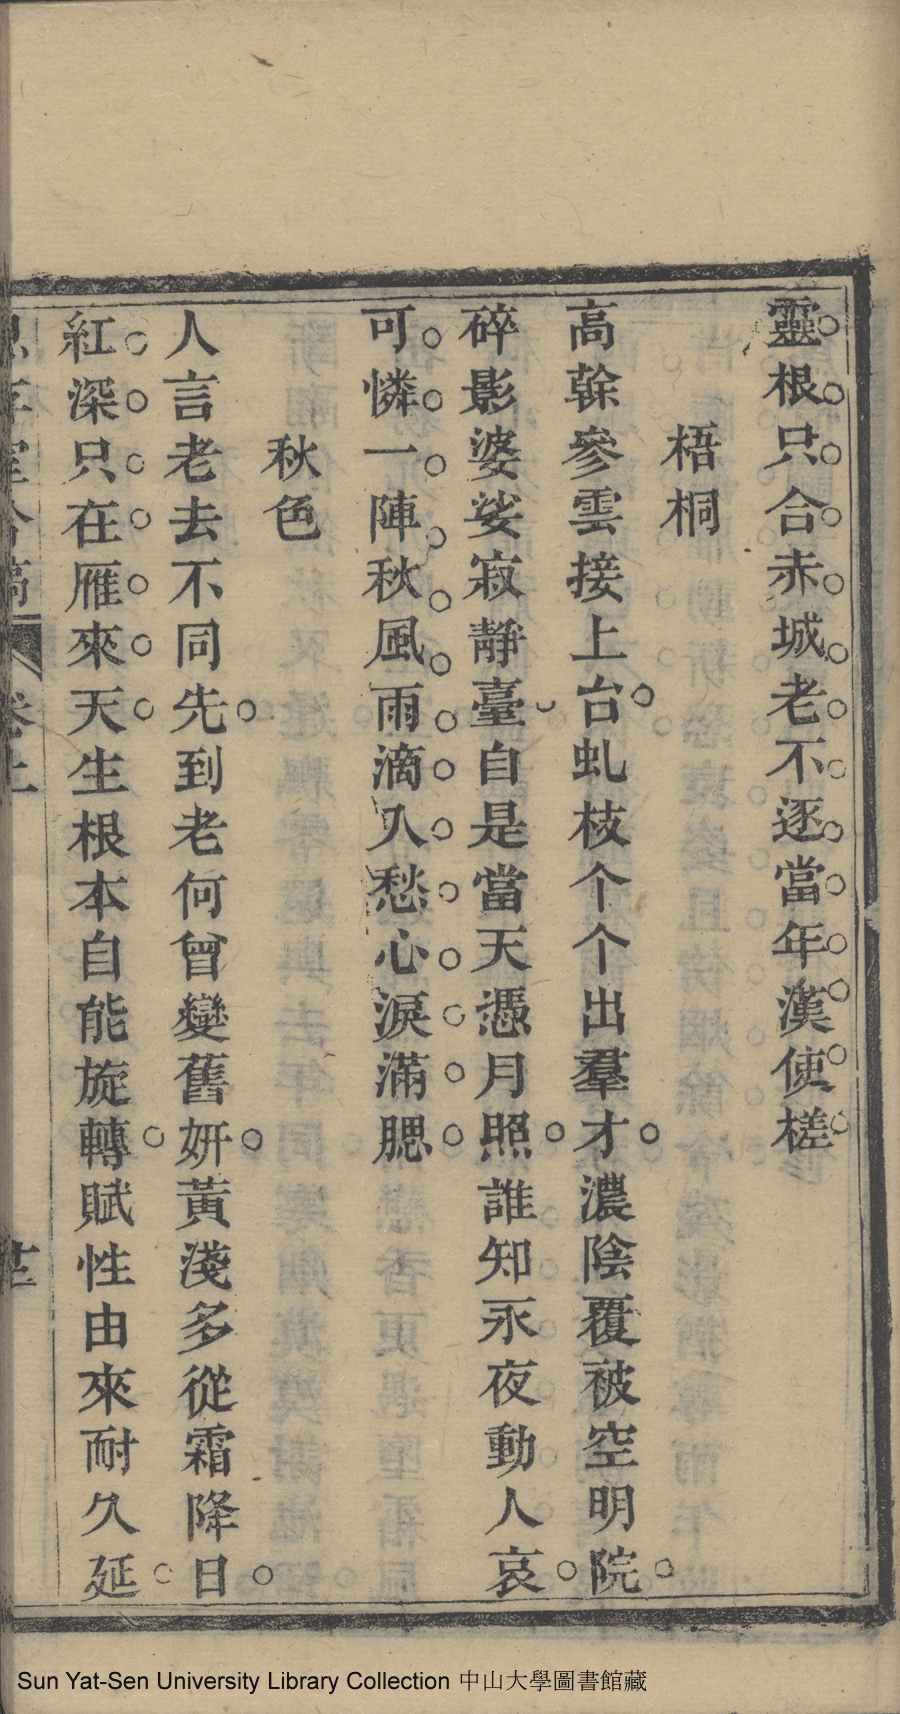 靈根只合赤城老不逐當年漢使槎
梧桐
高幹參雲接上台虬枝个个出羣才濃陰覆被空明院
碎影婆娑寂靜臺自是當天憑月照誰知永夜動人哀
可憐一陣秋風雨滴入愁心淚滿腮
秋色
人言老去不同先到老何曾變舊姸黃淺多從霜降日
紅深只在雁來天生根本自能旋轉賦性由來耐久延
卷上
Sun Yat-Sen University Library Collection 中山大學圖書館藏